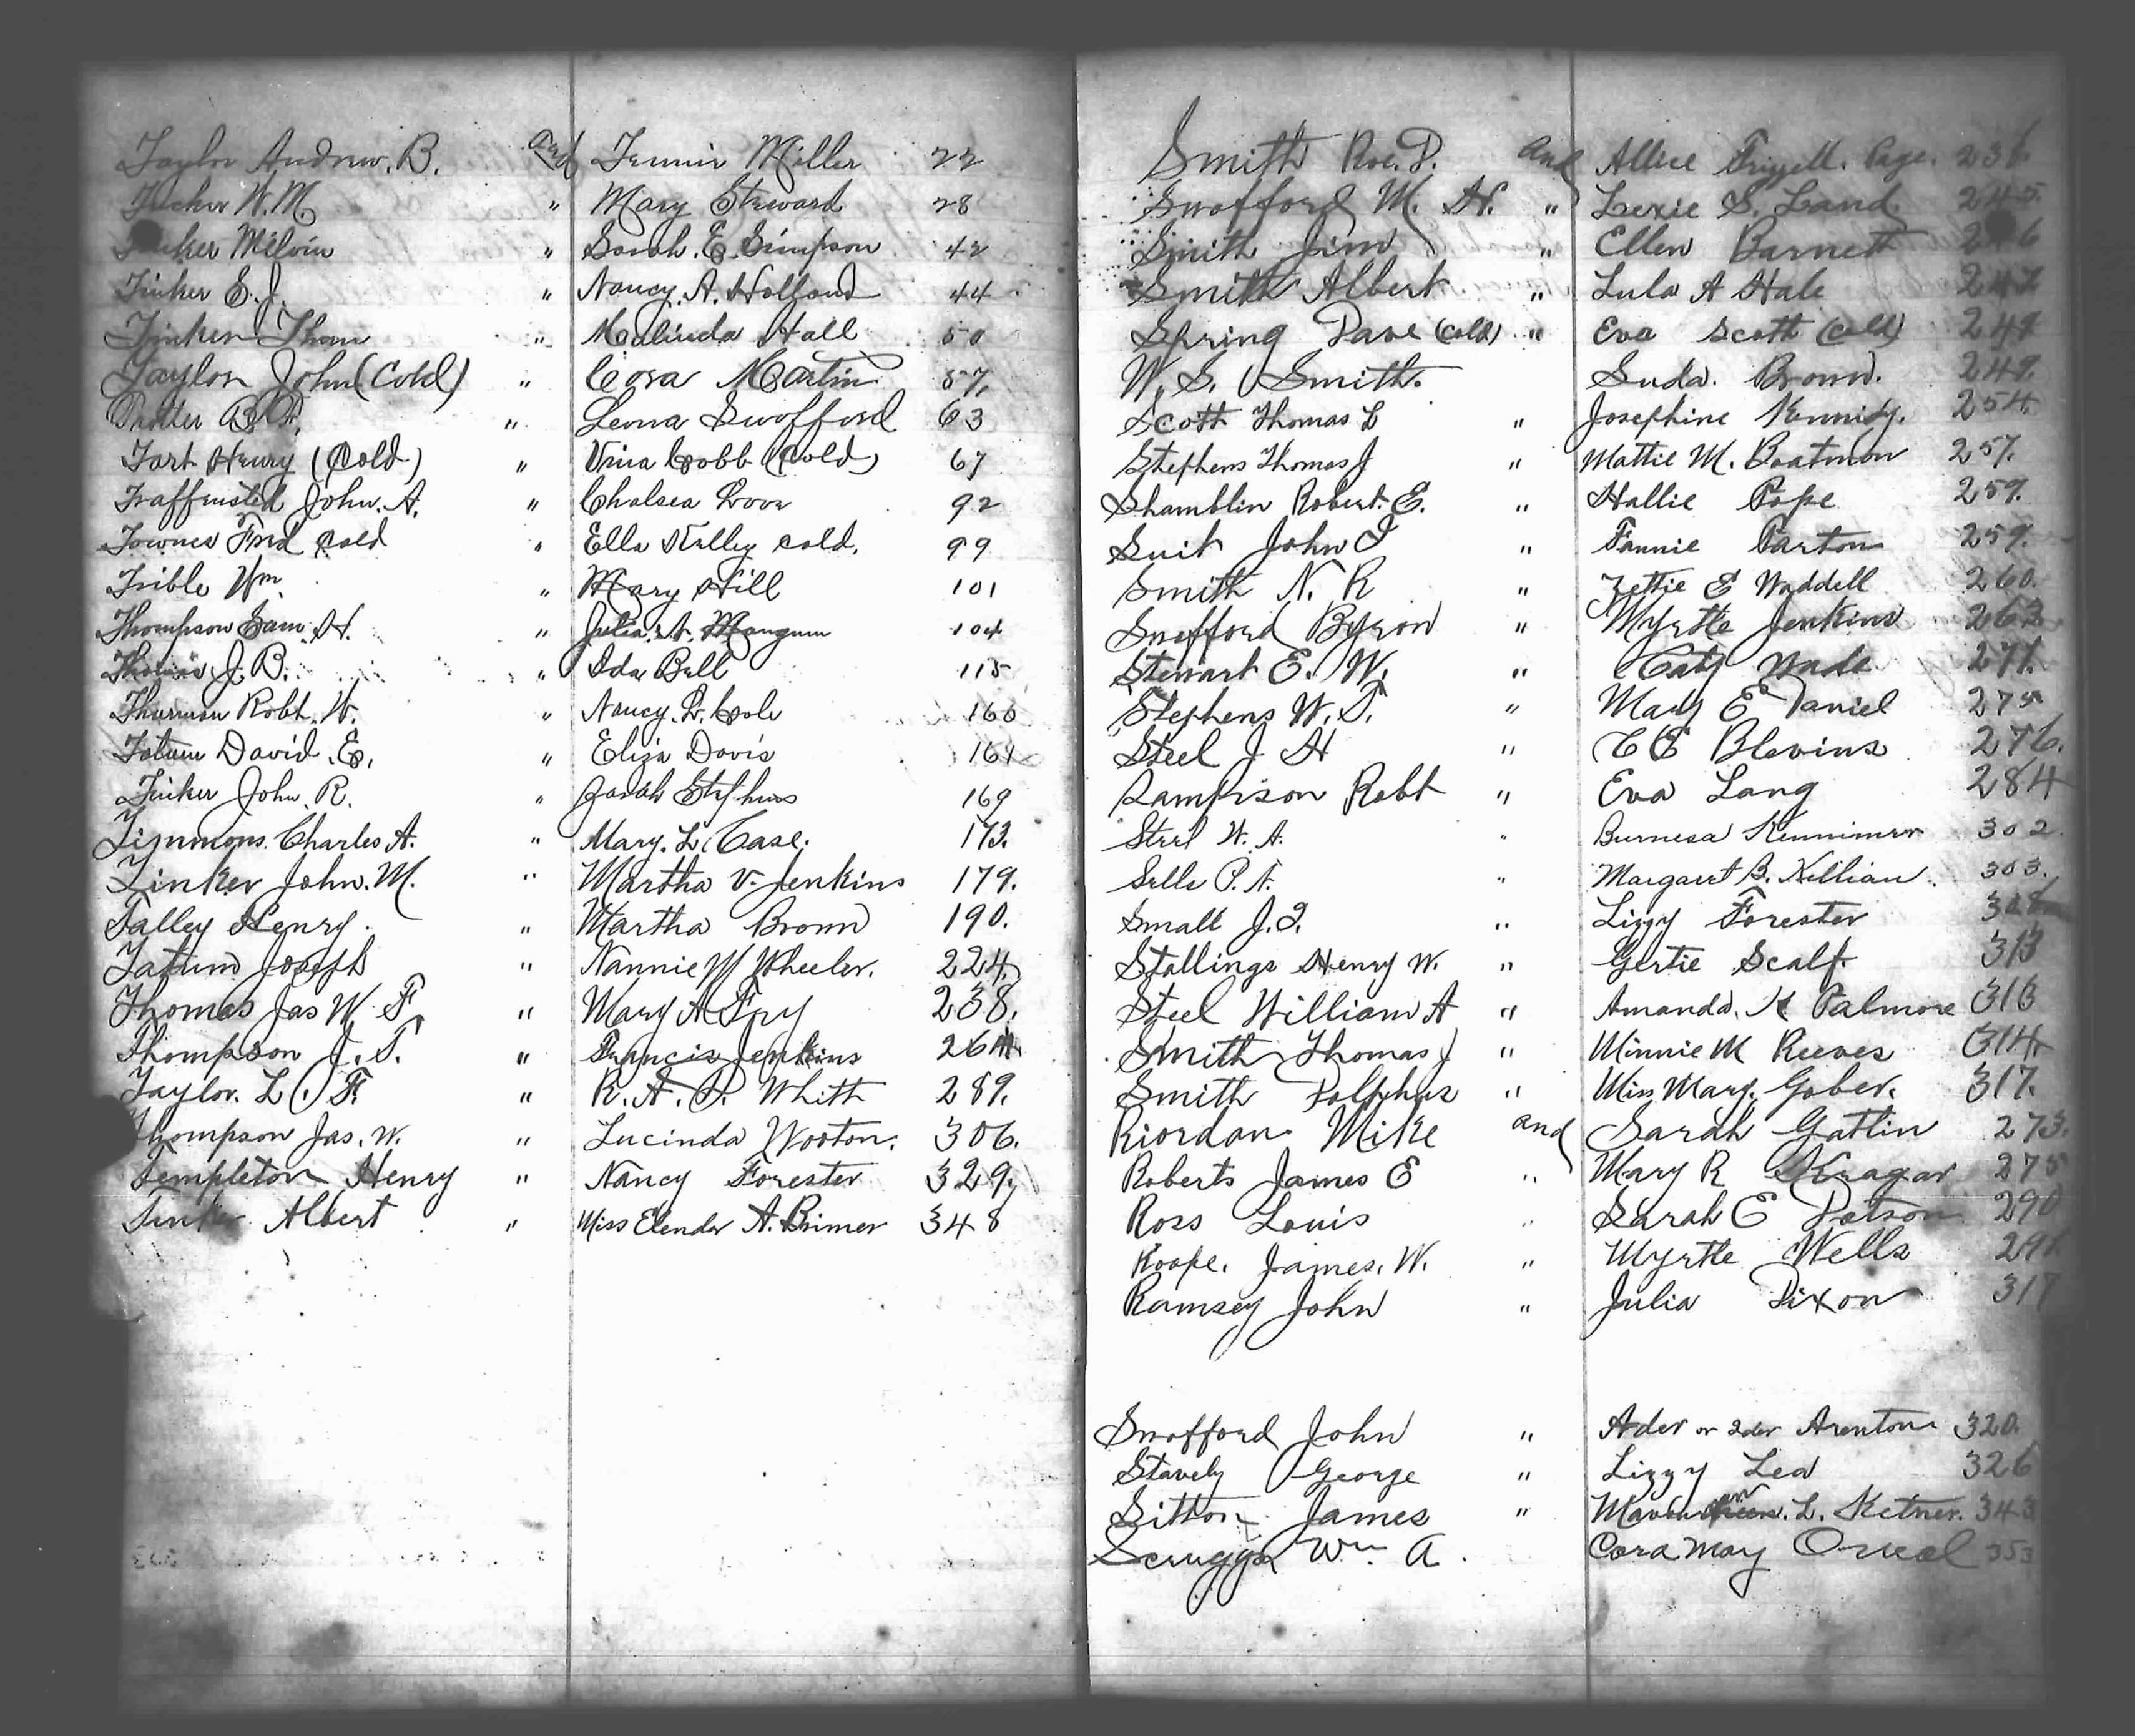 Taylor Andrew. B. and Jennie Miller 22
Tucker W. M. " Mary Steward 28
Tinker Melvin " Sarah. E. Simpson 42
Tinker E. J. " Nancy. A. Holland 44
Tinker Thom " Malinda Hall 50
Taylor John (Cold) " Cora Martin 57.
Trotter " Leona Swofford 63
Tart Henry (Cold) " Vina Cobb (Cold) 67
Traffensted John. A. " Chalsea Love 92
Townes Fred Cold " Ella Kelley Cold. 99
Trible Wm. " Mary Hill 101
Thompson Sam. H. " Julia. A. Mangum 104
Thomas J. B. " Ida Bell 115
Thurman Robt. W. " Nancy. L. Cole 166
Tatum David. E. " Eliza Davis 161
Tinker John. R. " Sarah Stephens 169
Timmons. Charles A. " Mary. L. Case. 173.
Tinker John. M. " Martha V. Jenkins 179.
Talley Henry. " Martha Brown 190.
Tatum Joseph " Nannie M Wheeler. 224.
Thomas Jas W. F " Mary A Fry 238.
Thompson J. T. " Francis Jenkins 264
Taylor. L. F. " R. A. D. Whitt 289.
Thompson Jas. W. " Lucinda Wooton. 306.
Templeton Henry " Nancy Forester 329.
Tinker Albert " Miss Elender A. Brimer 348
Smith Roe. D. and Allice Frizzell. Page. 236.
Swofford M. H. " Lexie S. Land. 245.
Smith Jim " Ellen Barnett 246
Smith Albert " Lula A Hale 247
Spring Dave (Cold) " Eva Scott (Cold) 248
W. S. Smith. Suda. Brown. 249.
Scott Thomas L " Josephine Kennidy. 254.
Stephens Thomas J " Mattie M. Boatman 257.
Shamblin Robert. E. " Hallie Pope 259.
Suit John I " Fannie Parton 259.
Smith N. R " Zettie E Waddell 260.
Swofford Byron " Myrtle Jenkins 262.
Stewart E. W. " Caty Wade 271.
Stephens W. T. " Mary E Daniel 275
Steel J H " C E Blevins 276.
Sampison Robt " Eva Lang 284
Steel W. A. " Burnesa Kennimer 302.
Sells P. A. " Margaret B. Killian. 303.
Small J. I. " Lizzy Forester 308
Stallings Henry W. " Gertie Scalf 313
Steel William A " Amanda. K Palmore 313
Smith Thomas J " Minnie M Reeves 314.
Smith Dolphus " Miss Mary. Gober. 317.
Riordan Mike and Sarah Gatlin 273.
Roberts James E " Mary R Kragar 275
Ross Louis " Sarah E Dotson 290
Roope. James. W. " Myrtle Wells 291
Ramsey John " Julia Dixon 317
Swofford John " Ader or Ider Arenton 320.
Stavely George " Lizzy Lea 326
Sitton James " L. Ketner. 343
Scruggs Wm A. Cora May Oneal 353